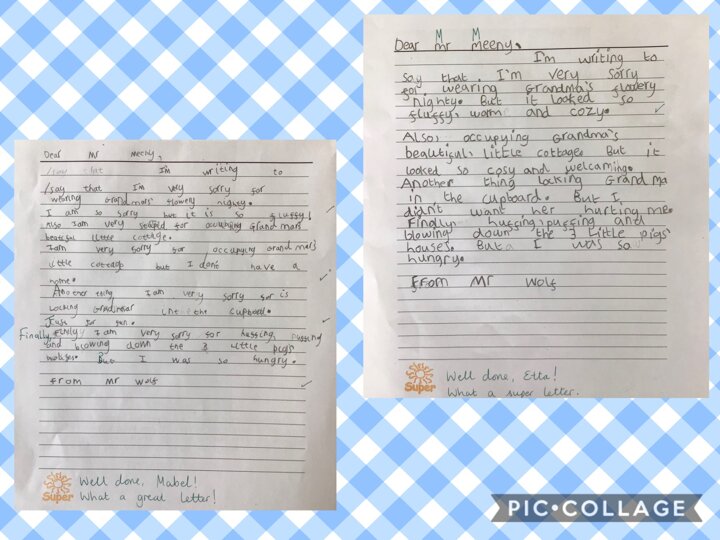 Dear Mr Meeny,
I'm writing to
/say that I'm very sorry for
wering Grandmars flowery nighty.
I am so sorry but it is so fluffy!
Also I am very for occupying Grandmars
little cottage.
I am very sorry for occupying Grandmars
little cottage but I don't have a
home.
Another thing I am very sorry for is
locking Grandmar in the cupboard.
Just for fun.
Finally, I am very sorry for huffing, puffing
and blowing down the 3 little pigs
houses. But I was so hungry.
from Mr wolf
Super
Well done, Mabel!
What a great letter!
M M
Dear Mr Meeny.
I'm writing to
say that. I'm very sorry
for wearing Grandma's flowery
nighty. But it looked so
fluffy, warm and cozy.
Also, occupying Grandma's
beautiful, little cottage. But it
looked so cosy and welcaming.
Another thing locking Grandma
in the cupboard. But I
didn't want her hurting me.
Finally huffing, puffing and
blowing down the 3 little pigs'
houses. But I was so
hungry.
from Mr wolf
Super
Well done, Etta!
What a super letter.
PIC•COLLAGE